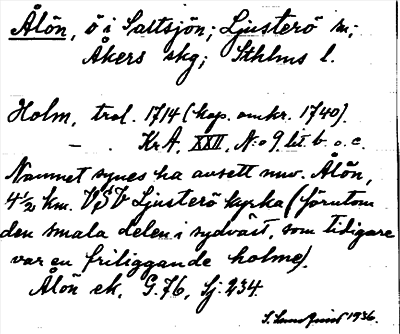 Ålön, ö i Saltsjön; Ljusterö sn;
Åkers skg; Sthlms l.
Holm, trol. 1714 (kop. omkr. 1740).
— . Kr A, XXII, N:o 9 lit. b. o. c.
Namnet synes ha avsett nuv. Ålön,
4 ½ km. VSV Ljusterö kyrka (förutom
den smala delen i sydväst, som tidigare
var en friliggande holme).
Ålön ek. G. 76, Sj. 234.
S. Sundquist 1936.